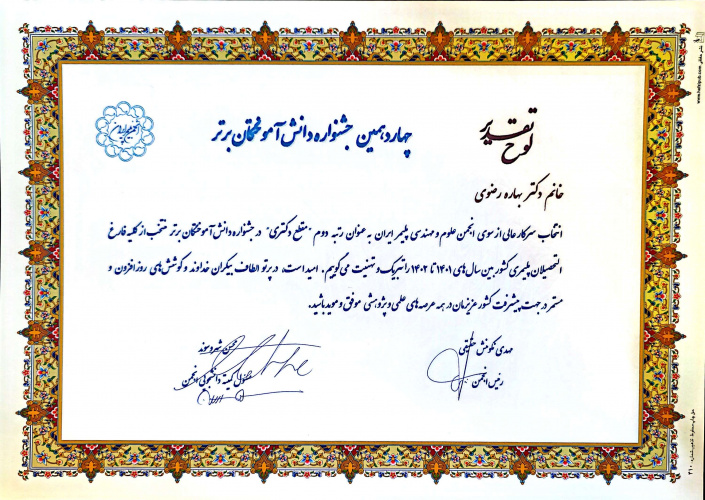 لوح تقدیر
چهاردهمین جشنواره دانش آموختگان برتر
خانم دکتر بهاره رضوی
انتخاب سرکار عالی از سوی انجمن علوم و مهندسی پلیمر ایران به عنوان رتبه دوم "مقطع دکتری" در جشنواره دانش آموختگان برتر منتخب از کلیه فارغ
التحصیلان پلیمری کشور بین سال های ۱۴۰۱ تا ۱۴۰۲ را تبریک و تهنیت می گوییم. امید است، در پرتو الطاف بیکران خداوند و کوشش های روز افزون و
مستمر در جهت پیشرفت کشور عزیزمان در همه عرصه های علمی و پژوهشی موفق و موید باشید.
مهدی نکومنش حقیقی
رئیس انجمن
محسن شهروسوند
مسئول کمیته دانشجویی انجمن
www.hafizpub.com